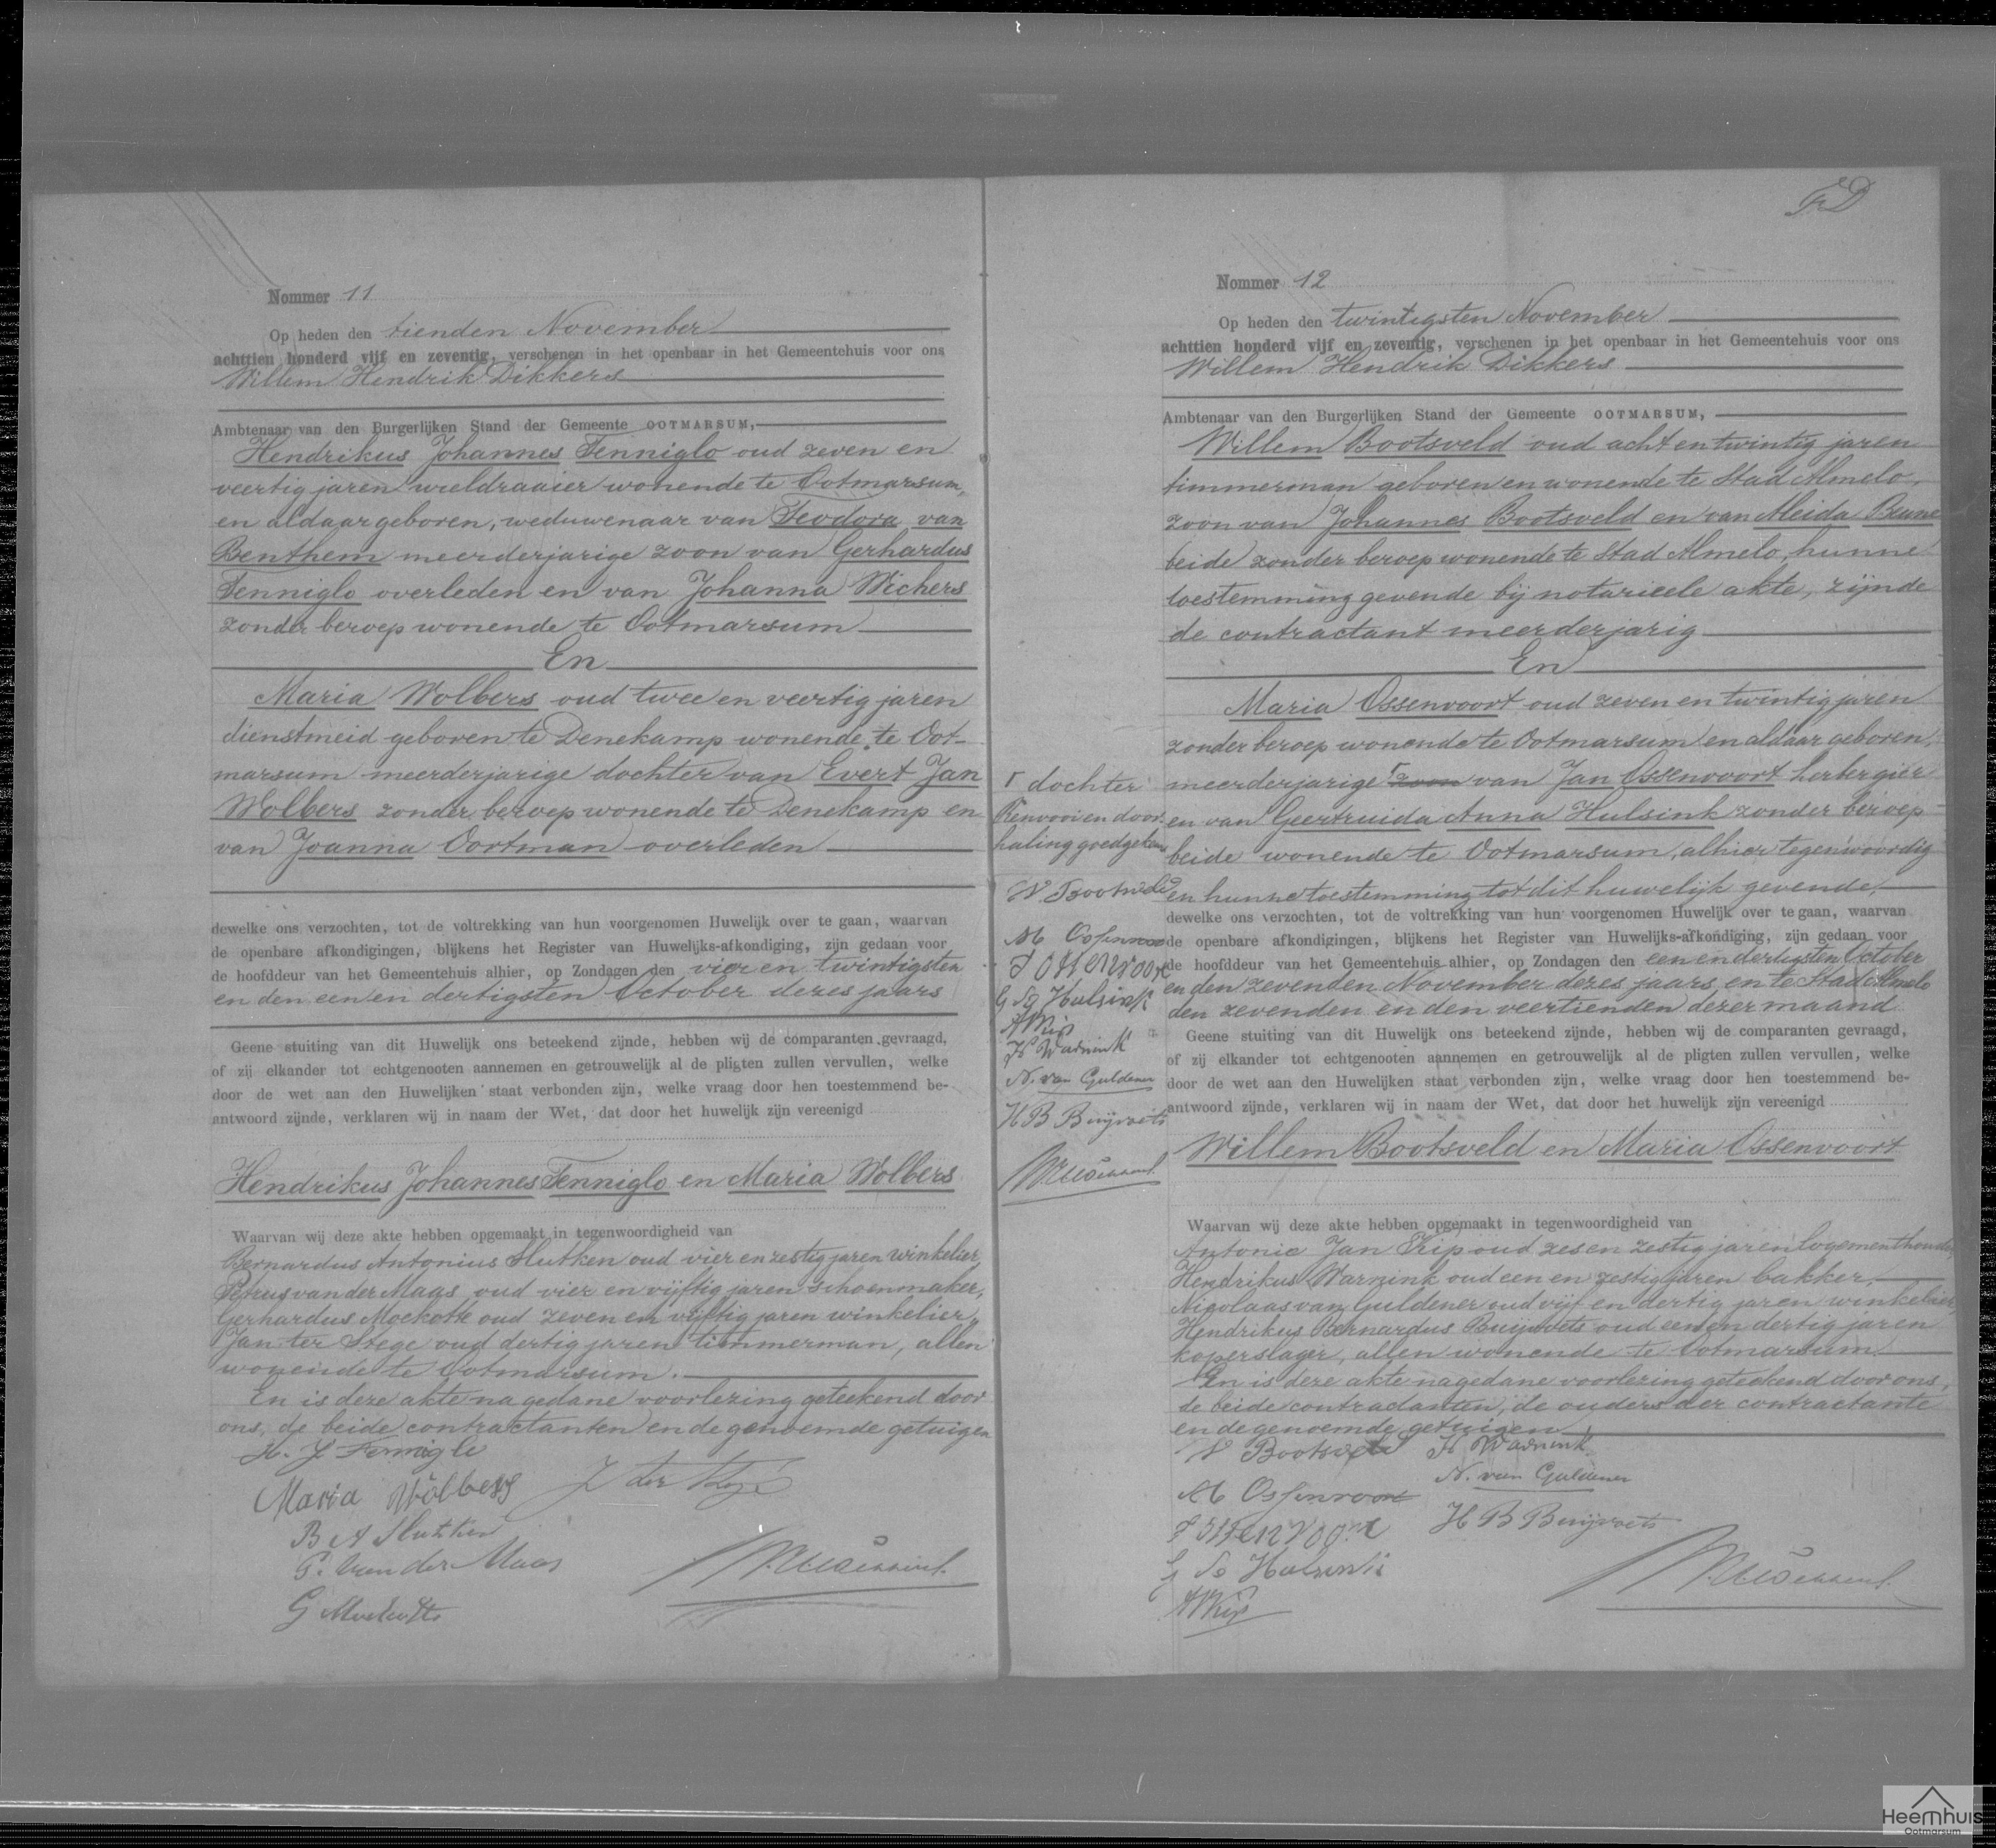 Nommer 11
Op heden den tienden November
achttien honderd vijf en zeventig, verschenen in het openbaar in het Gemeentehuis voor ons
Willem Hendrik Dikkers
Ambtenaar van den Burgerlijken Stand der Gemeente OOTMARSUM,
Hendrikus Johannes Fenniglo oud zeven en
veertig jaren wieldraaier wonende te Ootmarsum,
en aldaar geboren, weduwenaar van Teodora van
Benthem meerderjarige zoon van Gerhardus
Fenniglo overleden en van Johanna Wichers
zonder beroep wonende te Ootmarsum
En
Maria Wolbers oud twee en veertig jaren
dienstmeid geboren te Denekamp wonende te Oot-
marsum meerderjarige dochter van Evert Jan
Wolbers zonder beroep wonende te Denekamp en
van Joanna Oortman overleden
dewelke ons verzochten, tot de voltrekking van hun voorgenomen Huwelijk over te gaan, waarvan
de openbare afkondigingen, blijkens het Register van Huwelijks-afkondiging, zijn gedaan voor
de hoofddeur van het Gemeentehuis alhier, op Zondagen den vier en twintigsten
en den een en dertigsten October dezes jaars
Geene stuiting van dit Huwelijk ons beteekend zijnde, hebben wij de comparanten gevraagd,
of zij elkander tot echtgenooten aannemen en getrouwelijk al de pligten zullen vervullen, welke
door de wet aan den Huwelijken staat verbonden zijn, welke vraag door hen toestemmend be-
antwoord zijnde, verklaren wij in naam der Wet, dat door het huwelijk zijn vereenigd
Hendrikus Johannes Fenniglo en Maria Wolbers
Waarvan wij deze akte hebben opgemaakt in tegenwoordigheid van
Bernardus Antonius Slutken oud vier en zestig jaren winkelier,
Petrus van der Maas oud vier en vijftig jaren schoenmaker,
Gerhardus Moekotte oud zeven en vijftig jaren winkelier,
Jan ter Stege oud dertig jaren timmerman, allen
wonende te Ootmarsum.
En is deze akte na gedane voorlezing geteekend door
ons, de beide contractanten en de genoemde getuigen
H. J Fenniglo
Maria Wolbers J ter Stege
B A Slutken
P. van der Maas
G Moekotte
FD
Nommer 12
Op heden den twintigsten November
achttien honderd vijf en zeventig, verschenen in het openbaar in het Gemeentehuis voor ons
Willem Hendrik Dikkers
Ambtenaar van den Burgerlijken Stand der Gemeente OOTMARSUM,
Willem Bootsveld oud acht en twintig jaren
timmerman geboren en wonende te Stad Almelo,
zoon van Johannes Bootsveld en van Aleida Beune
beide zonder beroep wonende te Stad Almelo, hunne
toestemming gevende bij notarieele akte, zijnde
de contractant meerderjarig
En
Maria Ossenvoort oud zeven en twintig jaren
zonder beroep wonende te Ootmarsum en aldaar geboren,
meerderjarige zoon van Jan Ossenvoort herbergier
en van Geertruida Anna Hulsink zonder beroep
beide wonende te Ootmarsum, alhier tegenwoordig
en hunne toestemming tot dit huwelijk gevende
dewelke ons verzochten, tot de voltrekking van hun voorgenomen Huwelijk over te gaan, waarvan
de openbare afkondigingen, blijkens het Register van Huwelijks-afkondiging, zijn gedaan voor
de hoofddeur van het Gemeentehuis alhier, op Zondagen den een en dertigsten October
en den zevenden November dezes jaars en te Stad Almelo
den zevenden en den veertienden dezer maand
Geene stuiting van dit Huwelijk ons beteekend zijnde, hebben wij de comparanten gevraagd,
of zij elkander tot echtgenooten aannemen en getrouwelijk al de pligten zullen vervullen, welke
door de wet aan den Huwelijken staat verbonden zijn, welke vraag door hen toestemmend be-
antwoord zijnde, verklaren wij in naam der Wet, dat door het huwelijk zijn vereenigd
Willem Bootsveld en Maria Ossenvoort
Waarvan wij deze akte hebben opgemaakt in tegenwoordigheid van
Antonie Jan Kip oud zes en zestig jaren logementhouder,
Hendrikus Warnink oud een en zestig jaren bakker,
Nicolaas van Guldener oud vijf en dertig jaren winkelier,
Hendrikus Bernardus Buijvoets oud een en dertig jaren
koperslager, allen wonende te Ootmarsum.
En is deze akte na gedane voorlezing geteekend door ons,
de beide contractanten, de ouders der contractante
en de genoemde getuigen
W Bootsveld H Warnink
N. van Guldener
M Ossenvoort
J Ossenvoort H B Buijvoets
G A Hulsink
A J Kip
dochter
Renvooi en door-
haling goedgekeurd
W Bootsveld
M Ossenvoort
J Ossenvoort
G A Hulsink
A J Kip
H Warnink
N. van Guldener
H B Buijvoets
Heemhuis
Ootmarsum